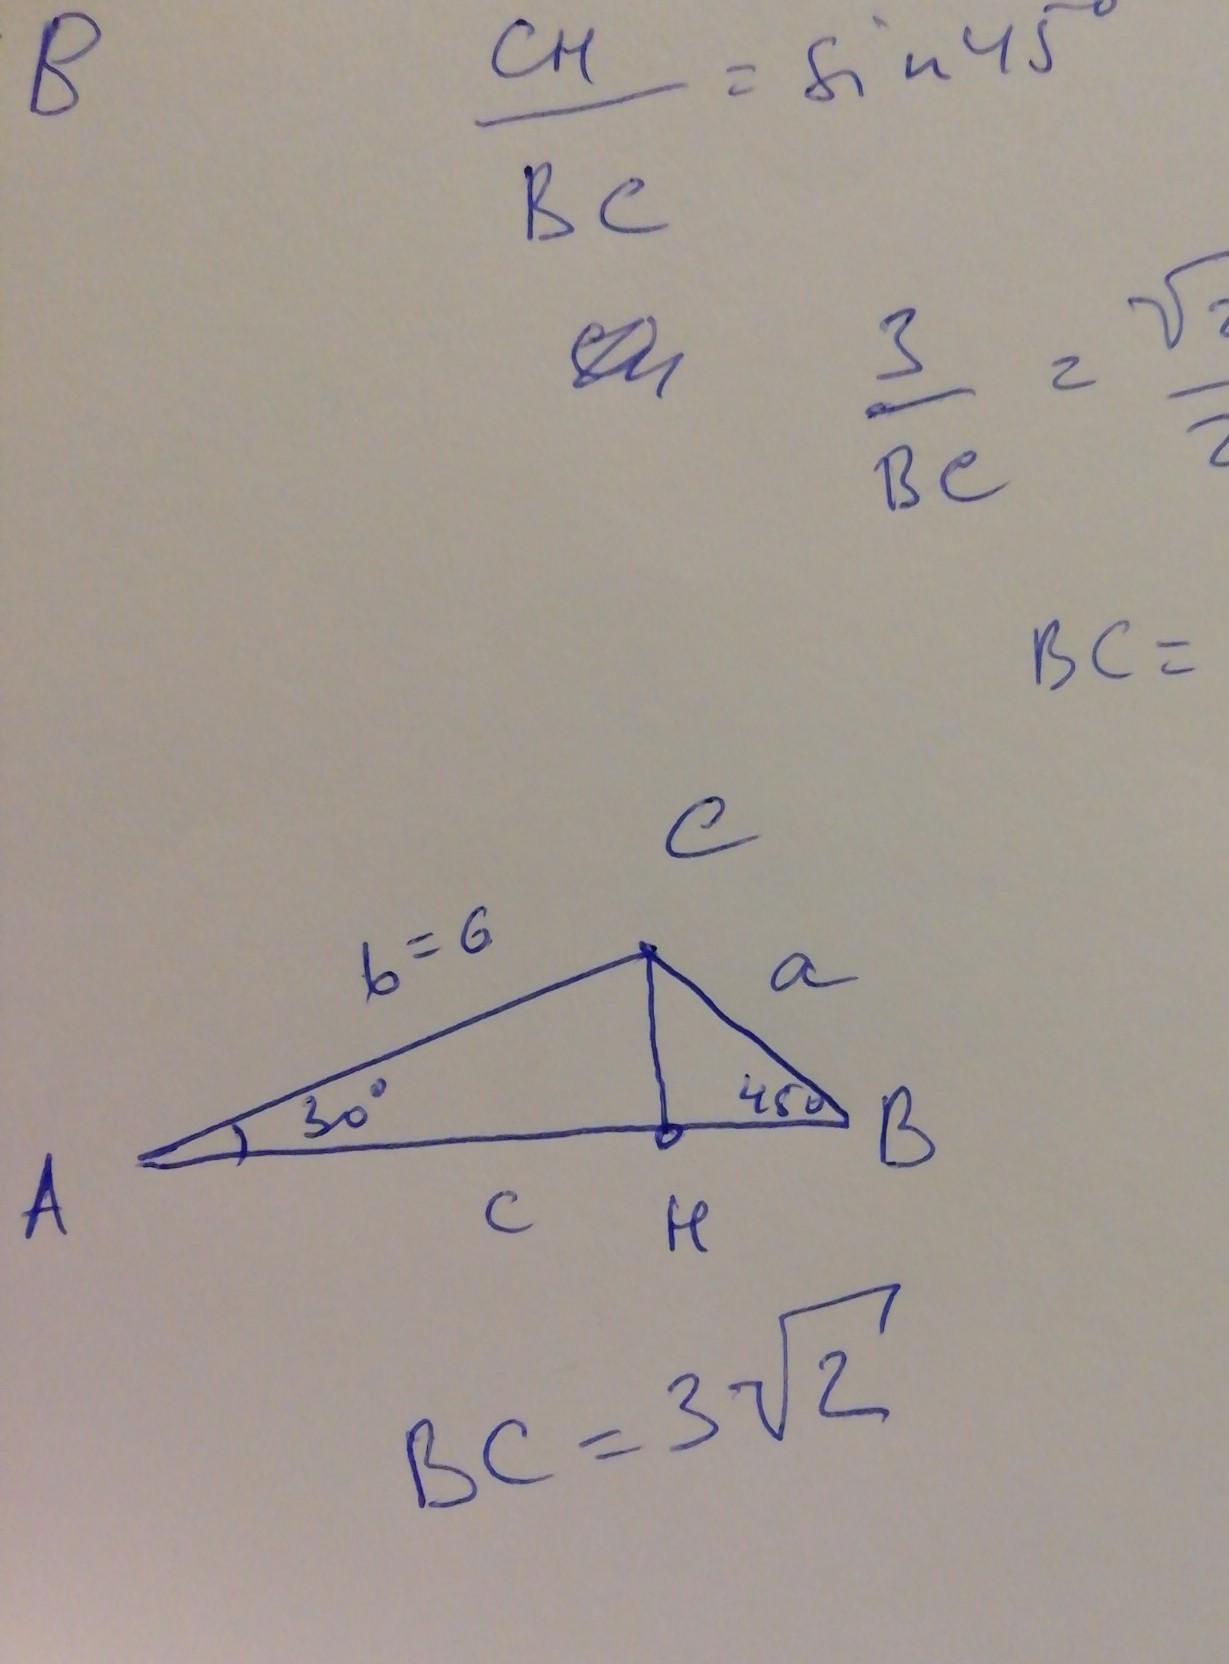 B
CH
/BC = sin 45°
3
/BC = √2
/2
BC =
C
b = 6
a
30°
45°
A
B
C
H
BC = 3√2